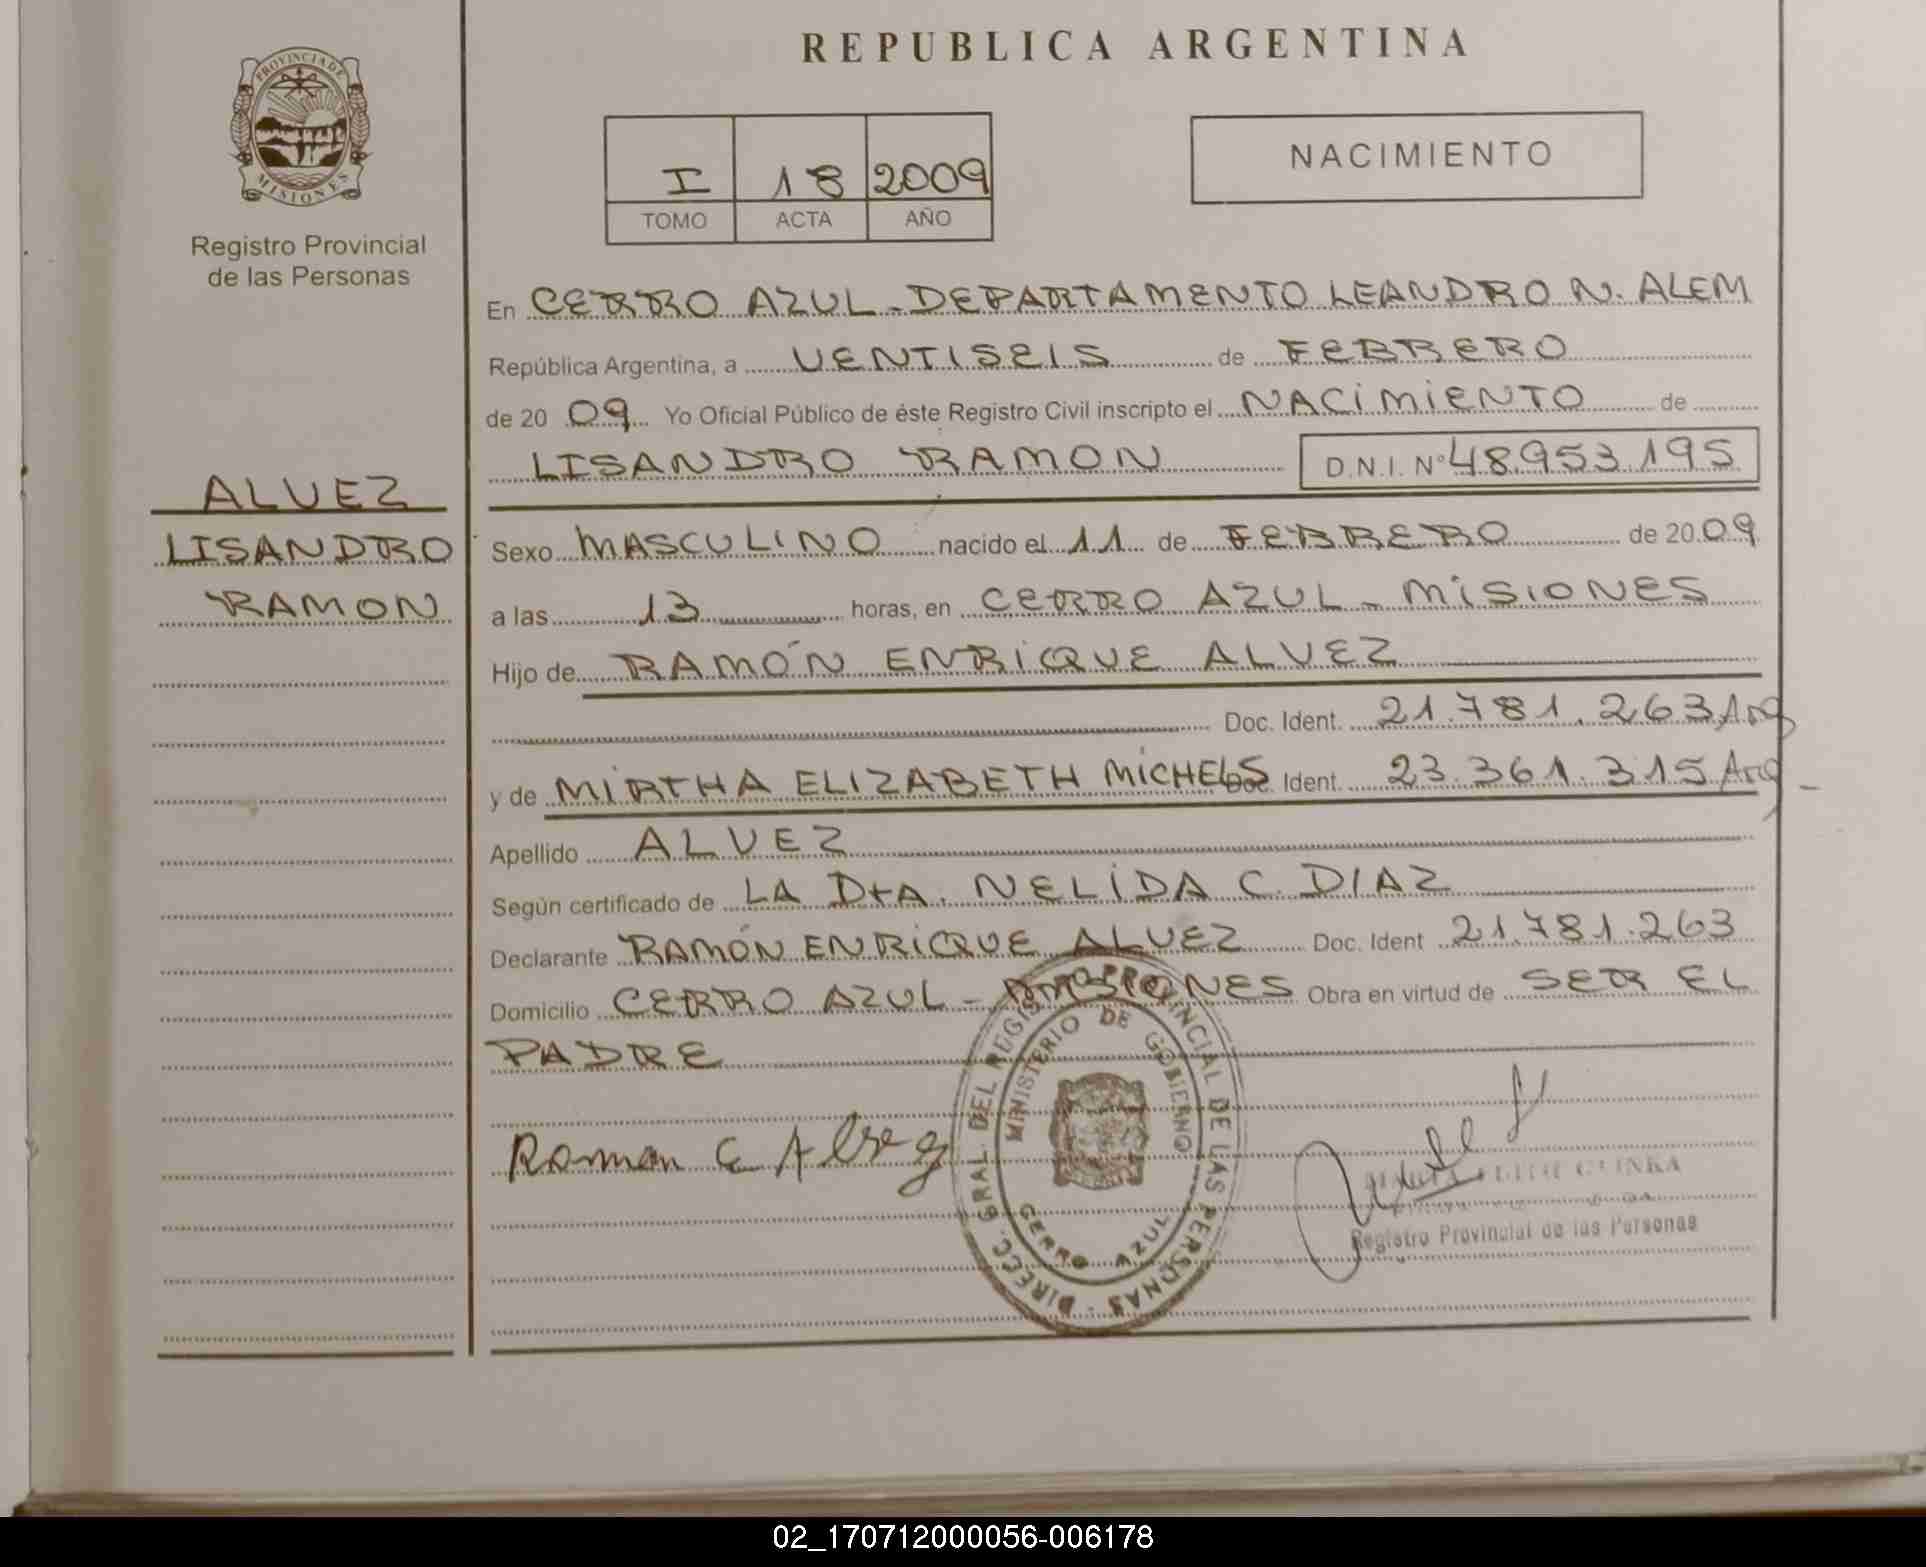 REPUBLICA ARGENTINA
PROVINCIA DE
MISIONES
Registro Provincial
de las Personas
I 18 2009
TOMO ACTA AÑO
NACIMIENTO
En CERRO AZUL - DEPARTAMENTO LEANDRO N. ALEM
República Argentina, a VENTISEIS de FEBRERO
de 20 09 Yo Oficial Público de éste Registro Civil inscripto el NACIMIENTO de
LISANDRO RAMON D.N.I. Nº 48.953.195
ALVEZ
LISANDRO
RAMON
Sexo MASCULINO nacido el 11 de FEBRERO de 20 09
a las 13 horas, en CERRO AZUL - MISIONES
Hijo de RAMÓN ENRIQUE ALVEZ
Doc. Ident. 21.781.263 Arg
y de MIRTHA ELIZABETH MICHELS Doc. Ident. 23.361.315 Arg -
Apellido ALVEZ
Según certificado de LA Dra. NELIDA C. DIAZ
Declarante RAMÓN ENRIQUE ALVEZ Doc. Ident 21.781.263
Domicilio CERRO AZUL - MISIONES Obra en virtud de SER EL
PADRE
Roman E Alvez
DIRECC. GRAL. DEL REGISTRO PROVINCIAL DE LAS PERSONAS
MINISTERIO DE GOBIERNO
CERRO AZUL
Registro Provincial de las Personas
02_170712000056-006178